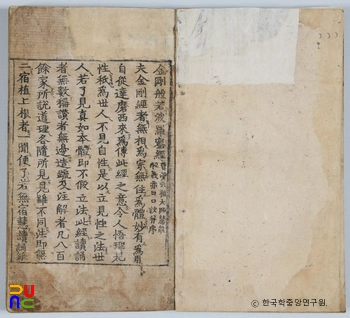 金剛般若波羅蜜經 曹溪六祖大師慧能
解義亦曰口訣并序
夫金剛經者無相爲宗無住爲體妙有爲用
自從達磨西來爲傳此經之意令人悟理見
性秖爲世人不見自性是以立見性之法世
人若了見眞如本體卽不假立法此經讀誦
者無數稱讚者無邊造疏及注解者凡八百
餘家所說道理各隨所見見雖不同法卽無
二宿植上根者一聞便了若無宿慧讀誦雖
한국학중앙연구원